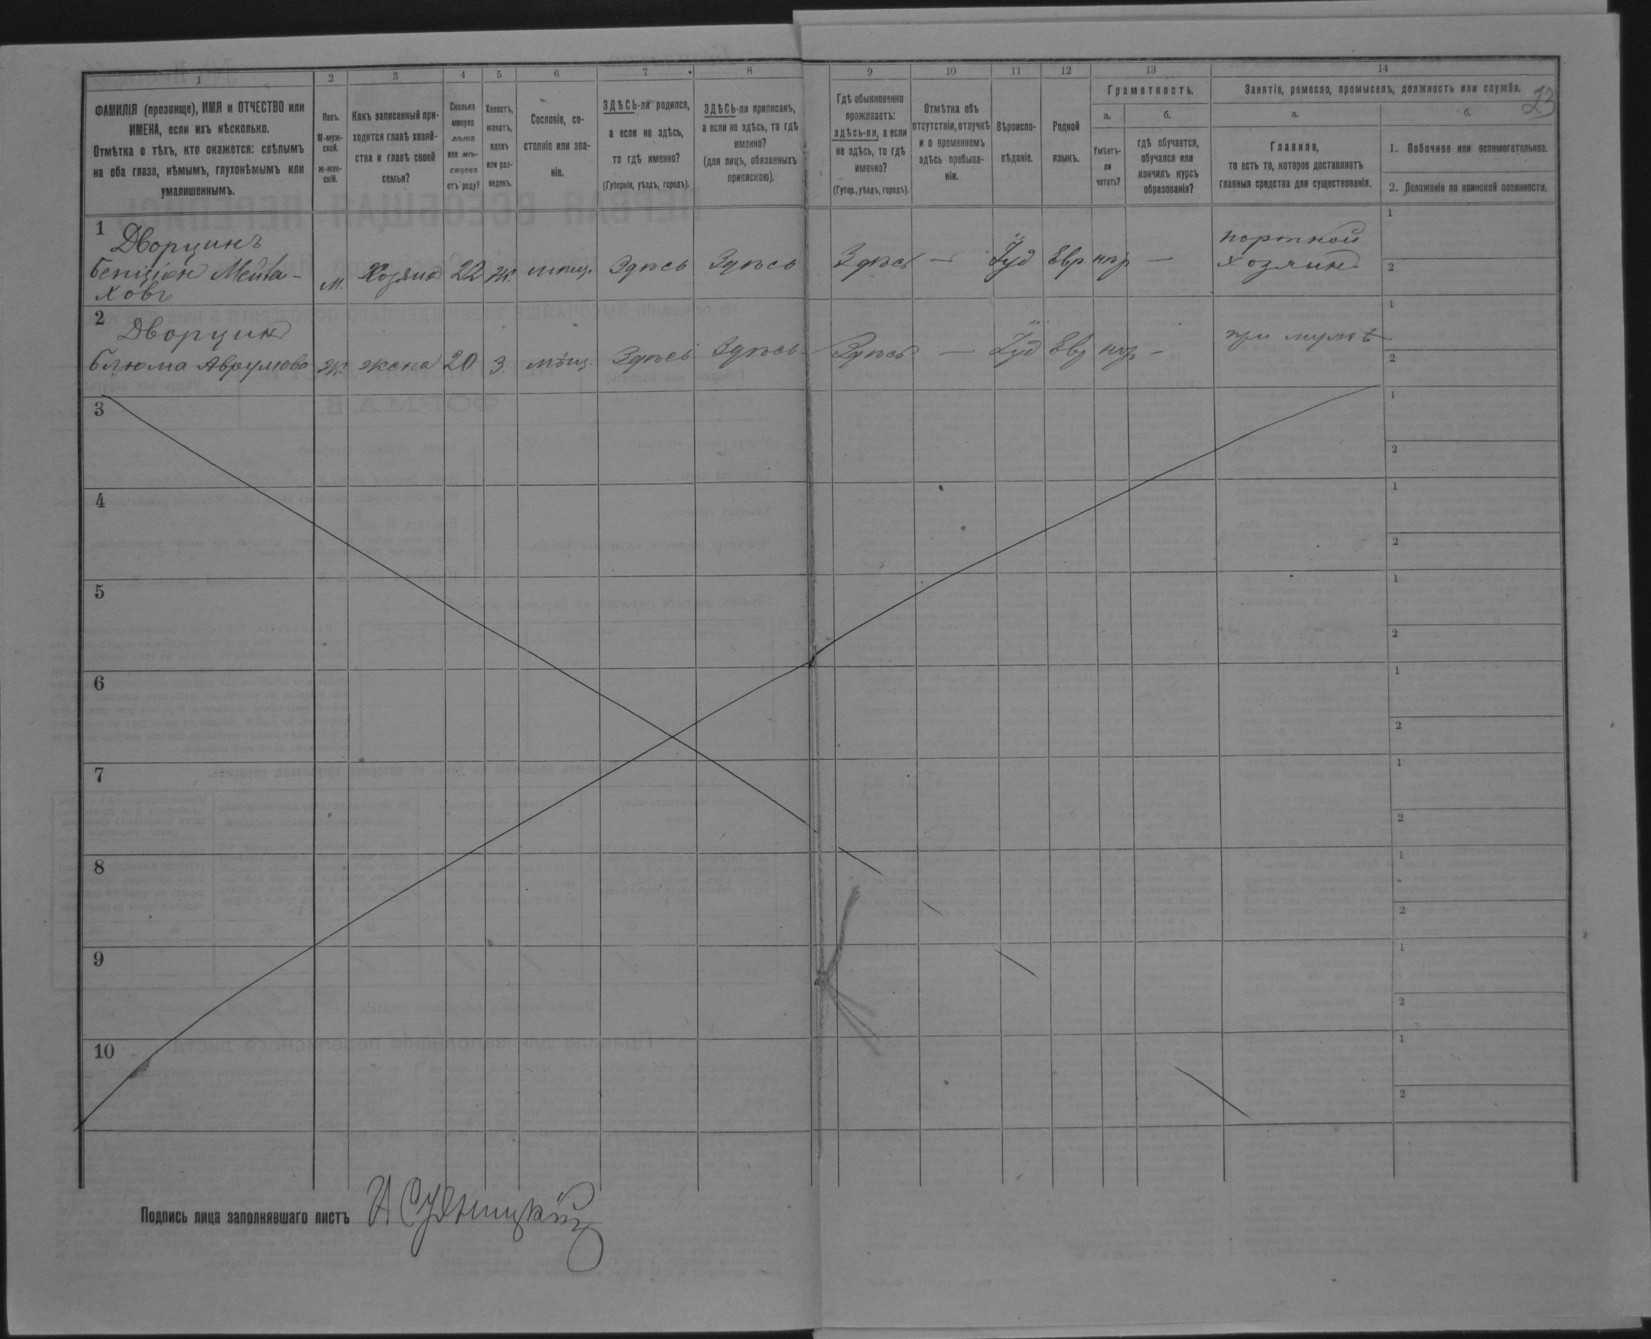 23
1
2
3
4
5
6
7
8
9
10
11
12
13
14
ФАМИЛІЯ (прозвище), ИМЯ и ОТЧЕСТВО или
ИМЕНА, если ихъ нѣсколько.
Отмѣтка о тѣхъ, кто окажется: слѣпымъ
на оба глаза, нѣмымъ, глухонѣмымъ или
умалишеннымъ.
Полъ.
М-муж-
ской.
ж-жен-
скій.
Какъ записанный при-
ходится главѣ хозяй-
ства и главѣ своей
семьи?
Сколько
минуло
лѣтъ
или мѣ-
сяцевъ
отъ роду?
Холостъ,
женатъ,
вдовъ
или раз-
веденъ.
Сословіе, со-
стояніе или зва-
ніе.
ЗДѢСЬ-ли родился,
а если не здѣсь,
то гдѣ именно?
(Губернія, уѣздъ, городъ).
ЗДѢСЬ-ли приписанъ,
а если не здѣсь, то гдѣ
именно?
(для лицъ, обязанныхъ
припискою).
Гдѣ обыкновенно
проживаетъ:
здѣсь-ли, а если
не здѣсь, то гдѣ
именно?
(Губер., уѣздъ, городъ).
Отмѣтка объ
отсутствіи, отлучкѣ
и о временномъ
здѣсь пребыва-
ніи.
Вѣроиспо-
вѣданіе.
Родной
языкъ.
Грамотность.
а.
Умѣетъ-
ли
читать?
б.
гдѣ обучается,
обучался или
кончилъ курсъ
образованія?
Занятіе, ремесло, промыселъ, должность или служба.
а.
Главное,
то есть то, которое доставляетъ
главныя средства для существованія.
б.
1. Побочное или вспомогательное.
2. Положеніе по воинской повинности.
1 Дворцинъ
Бенціон Мейта-
ховъ м. Хозяин 22 ж. мѣщ. Здѣсь Здѣсь Здѣсь — Іуд Евр нгр —
портной
хозяин
1
2
2 Дворцин
Блюма Аврумова ж. жена 20 з. мѣщ. Здѣсь Здѣсь Здѣсь — Іуд Евр нгр —
при мужѣ
1
2
3
1
2
4
1
2
5
1
2
6
1
2
7
1
2
8
1
2
9
1
2
10
1
2
Подпись лица заполнявшаго листъ